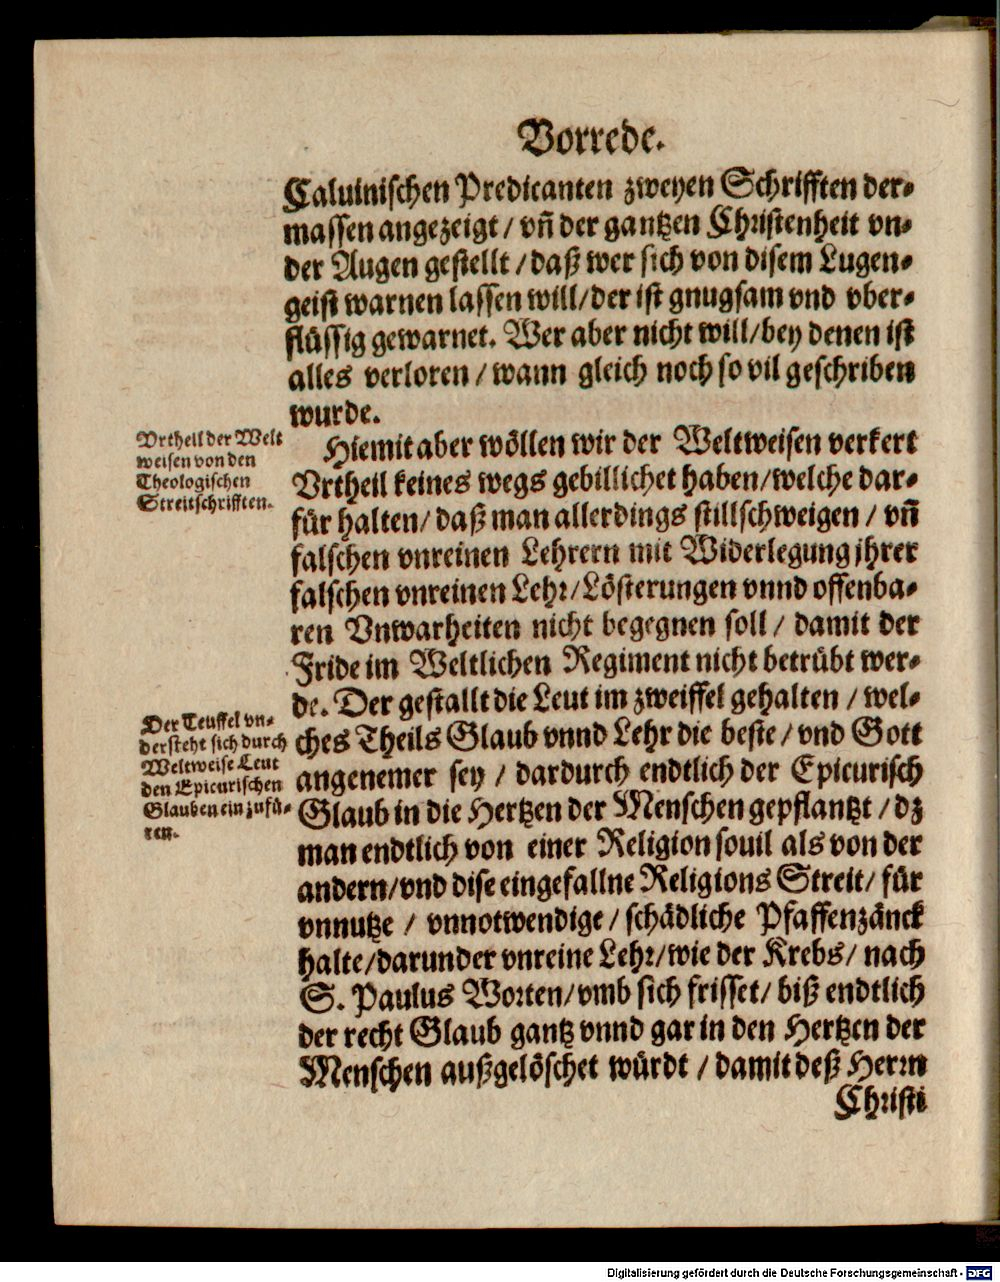 Vorrede.
Caluinischen Predicanten zweyen Schrifften der-
massen angezeigt / vñ der gantzen Christenheit vn-
der Augen gestellt / daß wer sich von disem Lugen-
geist warnen lassen will / der ist gnugsam vnd vber-
flüssig gewarnet. Wer aber nicht will / bey denen ist
alles verloren / wann gleich noch so vil geschriben
wurde.
Vrtheil der Welt
weisen von den
Theologischen
Streitschrifften.
Hiemit aber wöllen wir der Weltweisen verkert
Vrtheil keines wegs gebillichet haben / welche dar-
für halten / daß man allerdings stillschweigen / vñ
falschen vnreinen Lehrern mit Widerlegung jhrer
falschen vnreinen Lehr / Lösterungen vnnd offenba-
ren Vnwarheiten nicht begegnen soll / damit der
Fride im Weltlichen Regiment nicht betrübt wer-
de. Der gestallt die Leut im zweiffel gehalten / wel-
Der Teuffel vn-
dersteht sich durch
Weltweise Leut
den Epicurischen
Glauben ein zufü-
ren.
ches Theils Glaub vnnd Lehr die beste / vnd Gott
angenemer sey / dardurch endtlich der Epicurisch
Glaub in die Hertzen der Menschen gepflantzt / dz
man endtlich von einer Religion souil als von der
andern / vnd dise eingefallne Religions Streit / für
vnnutze / vnnotwendige / schädliche Pfaffenzänck
halte / darunder vnreine Lehr / wie der Krebs / nach
S. Paulus Worten / vmb sich frisset / biß endtlich
der recht Glaub gantz vnnd gar in den Hertzen der
Menschen außgelöschet würdt / damit deß Herrn
Christi
Digitalisierung gefördert durch die Deutsche Forschungsgemeinschaft - DFG